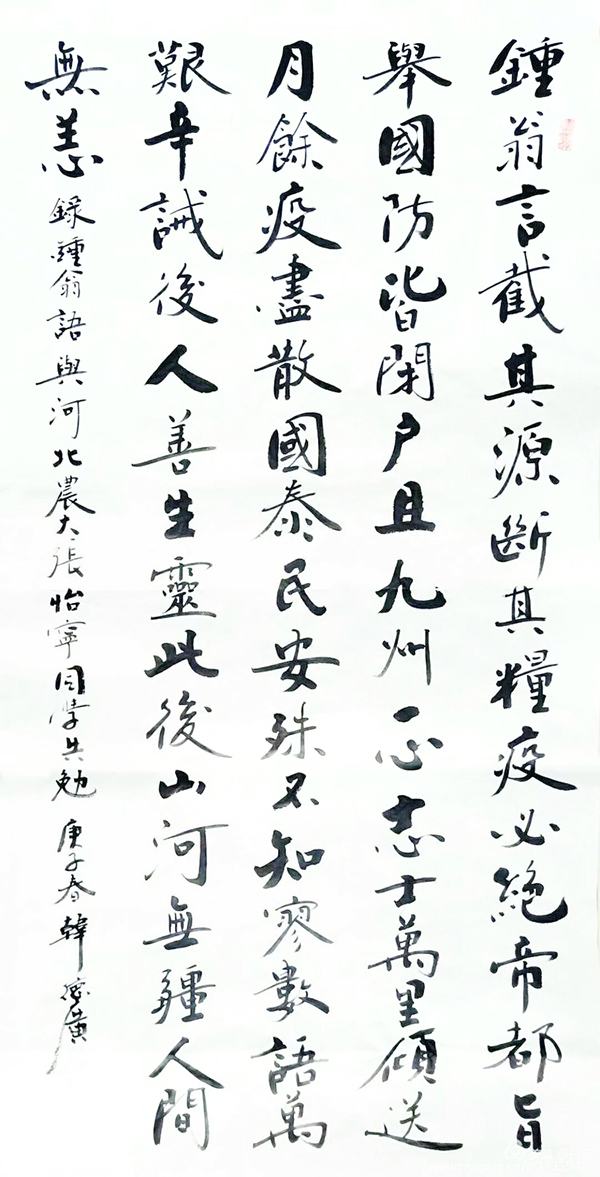 鍾翁言截其源斷其糧疫必絕帝都旨
舉國防皆閉户且九州一心志士萬里傾送
月餘疫盡散國泰民安殊不知寥數語萬
艱辛誡後人善生靈此後山河無疆人間
無恙
錄鍾翁語與河北農大張怡寧同學共勉 庚子春韓德廣